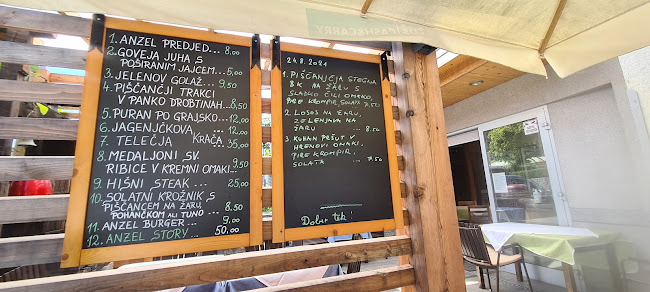 1. ANZEL PREDJED... 8.00
2. GOVEJA JUHA S
POŠIRANIM JAJCEM...5,00
3. JELENOV GOLAŽ...9,50
4. PIŠČANČJI TRAKCI
V PANKO DROBTINAH...8,50
5. PURAN PO GRAJSKO...12,00
6. JAGENJČKOVA ...12,00
7 TELEČJA KRAČA. 35,00
8. MEDALJONI SV.
RIBICE V KREMNI OMAKI... 9,50
9. HIŠNI STEAK ... 25,00
10. SOLATNI KROŽNIK S
PIŠČANCEM NA ŽARU,
POHANČKOM ALI TUNO ... 8.50
11. ANZEL BURGER ... 9,00
12. ANZEL STORY ... 50.00
24.8.2021
1. PIŠČANČJA STEGNA
BK NA ŽARU S
SLADKO ČILI OMAKO,
PIRE KROMPIR, SOLATA 7,50
2. LOSOS NA ŽARU,
ZELENJAVA NA
ŽARU . 8.50
3. KUHAN PRŠUT V
HRENOVI OMAKI,
PIRE KROMPIR,
SOLATA . 7.50
Dober tek!